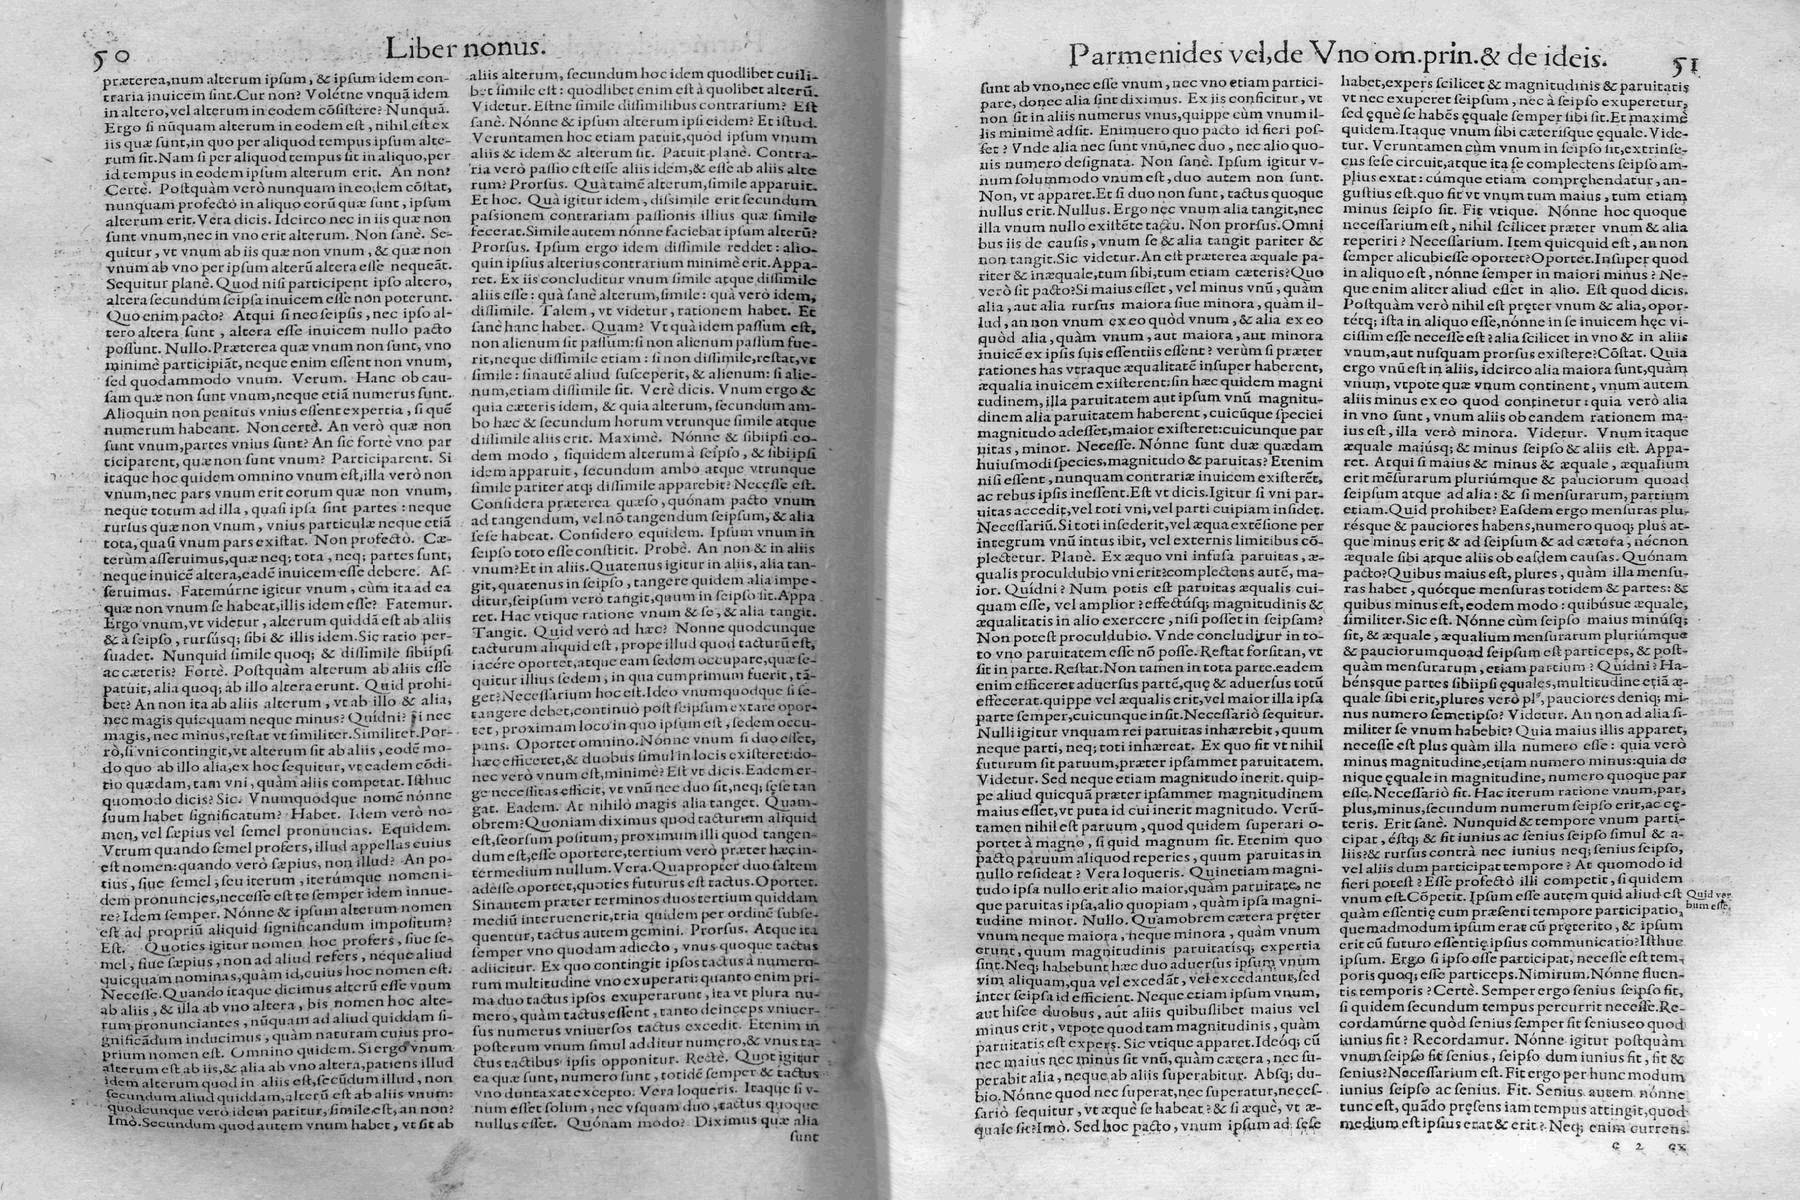 50
Liber nonus.
præterea,num alterum ipsum, & ipsum idem con-
traria inuicem sint.Cur non? Voléτne vnquã idem
in altero,vel alterum in eodem cõsistere? Nunquã.
Ergo si nũquam alterum in eodem est, nihil est ex
iis quæ sunt,in quo per aliquod tempus ipsum alte-
rum sit.Nam si per aliquod tempus sit in aliquo,per
id tempus in eodem ipsum alterum erit. An non?
Certè. Postquàm verò nunquam in eodem cõstat,
nunquam profectò in aliquo eorũ quæ sunt, ipsum
alterum erit.Vera dicis. Idcirco nec in iis quæ non
sunt vnum,nec in vno erit alterum. Non sanè. Se-
quitur, vt vnum ab iis quæ non vnum, & quæ non
vnum ab vno per ipsum alterũ altera esse nequeãt.
Sequitur planè. Quod nisi participent ipso altero,
altera secundum seipsa inuicem esse non poterunt.
Quo enim pacto? Atqui si nec seipsis, nec ipso al-
tero altera sunt, altera esse inuicem nullo pacto
possunt. Nullo.Præterea quæ vnum non sunt, vno
minimè participiãt, neque enim essent non vnum,
sed quodammodo vnum. Verum. Hanc ob cau-
sam quæ non sunt vnum,neque etiã numerus sunt.
Alioquin non penitus vnius essent expertia, si quẽ
numerum habeant. Non certè. An verò quæ non
sunt vnum,partes vnius sunt? An sic fortè vno par
ticiparent, quæ non sunt vnum? Participarent. Si
itaque hoc quidem omnino vnum est,illa verò non
vnum,nec pars vnum erit eorum quæ non vnum,
neque totum ad illa, quasi ipsa sint partes : neque
rursus quæ non vnum, vnius particulæ neque etiã
tota,quasi vnum pars existat. Non profectò. Cæ-
terùm asseruimus,quæ neq; tota, neq; partes sunt,
neque inuicẽ altera,eadẽ inuicem esse debere. As-
seruimus. Fatemúrne igitur vnum, cùm ita ad ea
quæ non vnum se habeat,illis idem esse? Fatemur.
Ergo vnum,vt videtur, alterum quiddã est ab aliis
& à seipso, rursúsq; sibi & illis idem.Sic ratio per-
suadet. Nunquid simile quoq; & dissimile sibiipsi
ac cæteris? Fortè. Postquàm alterum ab aliis esse
patuit, alia quoq; ab illo altera erunt. Quid prohi-
bet? An non ita ab aliis alterum, vt ab illo & alia,
nec magis quicquam neque minus? Quidni? Si nec
magis, nec minus,restat vt similiter. Similiter.Por-
rò,si vni contingit,vt alterum sit ab aliis, eodẽ mo-
do quo ab illo alia,ex hoc sequitur, vt eadem cõdi-
tio quædam, tam vni, quàm aliis competat. Isthuc
quomodo dicis? Sic. Vnumquodque nomẽ nónne
suum habet significatum? Habet. Idem verò no-
men, vel sæpius vel semel pronuncias. Equidem.
Vtrum quando semel profers, illud appellas cuius
est nomen:quando verò sæpius, non illud? An po-
tius, siue semel, seu iterum, iterúmque nomen i-
dem pronuncies,necesse est te semper idem innue-
re? Idem semper. Nónne & ipsum alterum nomen
est ad propriũ aliquid significandum impositum?
Est. Quoties igitur nomen hoc profers, siue se-
mel, siue sæpius, non ad aliud refers, neque aliud
quicquam nominas,quàm id,cuius hoc nomen est.
Necesse.Quando itaque dicimus alterũ esse vnum
ab aliis, & illa ab vno altera, bis nomen hoc alte-
rum pronunciantes, nũquam ad aliud quiddam si-
gnificãdum inducimus, quàm naturam cuius pro-
prium nomen est. Omnino quidem. Si ergo vnum
alterum est ab iis,& alia ab vno altera,patiens illud
idem alterum quod in aliis est,secũdum illud, non
secundum aliud quiddam,alterũ est ab aliis vnum:
quodcunque verò idem patitur, simile est, an non?
Imò.Secundum quod autem vnum habet, vt sit ab
aliis alterum, secundum hoc idem quodlibet cuili-
bet simile est: quodlibet enim est à quolibet alterũ.
Videtur. Estne simile dissimilibus contrarium? Est
sanè. Nónne & ipsum alterum ipsi eidem? Et istud.
Veruntamen hoc etiam patuit,quòd ipsum vnum
aliis & idem & alterum sit. Patuit planè. Contra-
ria verò passio est esse aliis idem,& esse ab aliis alte
rum? Prorsus. Quà tamẽ alterum,simile apparuit.
Et hoc. Quà igitur idem, dissimile erit secundum
passionem contrariam passionis illius quæ simile
fecerat.Simile autem nónne faciebat ipsum alterũ?
Prorsus. Ipsum ergo idem dissimile reddet: alio-
quin ipsius alterius contrarium minimè erit.Appa-
ret. Ex iis concluditur vnum simile atque dissimile
aliis esse: quà sanè alterum,simile: quà verò idem,
dissimile. Talem, vt videtur, rationem habet. Et
sanè hanc habet. Quam? Vt quà idem passum est,
non alienum sit passum:si non alienum passum fue-
rit,neque dissimile etiam: si non dissimile,restat,vt
simile: sin autẽ aliud susceperit, & alienum: si alie-
num,etiam dissimile sit. Verè dicis. Vnum ergo &
quia cæteris idem, & quia alterum, secundum am-
bo hæc & secundum horum vtrunque simile atque
dissimile aliis erit. Maximè. Nónne & sibiipsi eo-
dem modo, siquidem alterum à seipso, & sibiipsi
idem apparuit, secundum ambo atque vtrunque
simile pariter atq; dissimile apparebit? Necesse est.
Considera præterea quæso, quónam pacto vnum
ad tangendum, vel nõ tangendum seipsum, & alia
sese habeat. Considero equidem. Ipsum vnum in
seipso toto esse constitit. Probè. An non & in aliis
vnum?Et in aliis.Quatenus igitur in aliis, alia tan-
git,quatenus in seipso, tangere quidem alia impe-
ditur,seipsum verò tangit,quum in seipso sit.Appa
ret. Hac vtique ratione vnum & se, & alia tangit.
Tangit. Quid verò ad hæc? Nonne quodcunque
tacturum aliquid est, prope illud quod tacturũ est,
iacére oportet,atque eam sedem occupare,quæ se-
quitur illius sedem, in qua cum primum fuerit, tã-
get?Necessarium hoc est.Ideo vnumquodque si se-
tangere debet,continuò post seipsum extare opor-
tet, proximam loco in quo ipsum est, sedem occu-
pans. Oportet omnino.Nónne vnum si duo esset,
hæc efficeret,& duobus simul in locis existeret:do-
nec verò vnum est,minimè? Est vt dicis.Eadem er-
ge necessitas efficit, vt vnũ nec duo sit,neq; sese tan
gat. Eadem. At nihilò magis alia tanget. Quam-
obrem?Quoniam diximus quod tacturum aliquid
est,seorsum positum, proximum illi quod tangen-
dum est,esse oportere,tertium verò præter hæc in-
termedium nullum. Vera.Quapropter duo saltem
adesse oportet,quoties futurus est tactus.Oportet.
Sin autem præter terminos duos tertium quiddam
mediũ interuenerit,tria quidem per ordinẽ subse-
quentur, tactus autem gemini. Prorsus. Atque ita
semper vno quodam adiecto, vnus quoque tactus
adiicitur. Ex quo contingit ipsos tactus à numero-
rum multitudine vno exuperari: quanto enim pri-
ma duo tactus ipsos exuperarunt, ita vt plura nu-
mero, quàm tactus essent, tanto deinceps vniuer-
sus numerus vniuersos tactus excedit. Etenim in
posterum vnum simul additur numero,& vnus ta-
ctus tactibus ipsis opponitur. Rectè. Quot igitur
ea quæ sunt, numero sunt, totidẽ semper & tactus
vno duntaxat excepto. Vera loqueris. Itaque si v-
num esset solum, nec vsquam duo, tactus quoque
nullus esset. Quónam modo? Diximus quæ alia
sunt
Parmenides vel,de Vno om.prin.& de ideis.
51
sunt ab vno,nec esse vnum, nec vno etiam partici-
pare, donec alia sint diximus. Ex iis conficitur, vt
non sit in aliis numerus vnus,quippe cùm vnum il-
lis minimè adsit. Enimuero quo pacto id fieri pos-
set? Vnde alia nec sunt vnũ,nec duo, nec alio quo-
uis numero designata. Non sanè. Ipsum igitur v-
num solummodo vnum est, duo autem non sunt.
Non, vt apparet.Et si duo non sunt, tactus quoque
nullus erit. Nullus. Ergo nec vnum alia tangit,nec
illa vnum nullo existẽte tactu. Non prorsus.Omni
bus iis de causis, vnum se & alia tangit pariter &
non tangit.Sic videtur.An est præterea æquale pa-
riter & inæquale,tum sibi,tum etiam cæteris?Quo
verò sit pacto?Si maius esset, vel minus vnũ, quàm
alia, aut alia rursus maiora siue minora, quàm il-
lud, an non vnum ex eo quòd vnum, & alia ex eo
quòd alia, quàm vnum, aut maiora, aut minora
inuicẽ ex ipsis suis essentiis essent? verùm si præter
rationes has vtraque æqualitatẽ insuper haberent,
æqualia inuicem existerent:sin hæc quidem magni
tudinem, illa paruitatem aut ipsum vnũ magnitu-
dinem alia paruitatem haberent, cuicũque speciei
magnitudo adesset,maior existeret:cuicunque par
uitas, minor. Necesse. Nónne sunt duæ quædam
huiusmodi species,magnitudo & paruitas? Etenim
nisi essent, nunquam contrariæ inuicem existerẽt,
ac rebus ipsis inessent.Est vt dicis.Igitur si vni par-
uitas accedit,vel toti vni,vel parti cuipiam insidet.
Necessariũ.Si toti insederit,vel æqua extẽsione per
integrum vnũ intus ibit, vel externis limitibus cõ-
plectetur. Planè. Ex æquo vni infusa paruitas, æ-
qualis proculdubio vni erit:complectens autẽ, ma-
ior. Quídni? Num potis est paruitas æqualis cui-
quam esse, vel amplior? effectúsq; magnitudinis &
æqualitatis in alio exercere, nisi posset in seipsam?
Non potest proculdubio. Vnde concluditur in to-
to vno paruitatem esse nõ posse. Restat forsitan, vt
sit in parte. Restat.Non tamen in tota parte.eadem
enim efficeret aduersus partẽ,quę & aduersus totũ
effecerat.quippe vel æqualis erit,vel maior illa ipsa
parte semper,cuicunque insit.Necessariò sequitur.
Nulli igitur vnquam rei paruitas inhærebit, quum
neque parti, neq; toti inhæreat. Ex quo sit vt nihil
futurum sit paruum,præter ipsammet paruitatem.
Videtur. Sed neque etiam magnitudo inerit. quip-
pe aliud quicquã præter ipsammet magnitudinem
maius esset,vt puta id cui inerit magnitudo. Verũ-
tamen nihil est paruum, quod quidem superari o-
portet à magno, si quid magnum sit. Etenim quo
pacto paruum aliquod reperies, quum paruitas in
nullo resideat? Vera loqueris. Quinetiam magni-
tudo ipsa nullo erit alio maior,quàm paruitate, ne
que paruitas ipsa,alio quopiam, quàm ipsa magni-
tudine minor. Nullo. Quamobrem cætera pręter
vnum neque maiora, neque minora, quàm vnum
erunt, quum magnitudinis paruitatisq; expertia
sint.Neq; habebunt hæc duo aduersus ipsum vnum
vim aliquam,qua vel excedãt, vel excedantur,sed
inter seipsa id efficient. Neque etiam ipsum vnum,
aut hisce duobus, aut aliis quibuslibet maius vel
minus erit, vtpote quod tam magnitudinis, quàm
paruitatis est expers. Sic vtique apparet.Ideóq; cũ
nec maius nec minus sit vnũ, quàm cætera, nec su-
perabit alia, neque ab aliis superabitur. Absq; du-
bio. Nónne quod nec superat,nec superatur,neces-
sariò sequitur, vt æquè se habeat? & si æquè, vt æ-
quale sit?Imò. Sed hoc pacto, vnum ipsum ad sese
habet,expers scilicet & magnitudinis & paruitatis
vt nec exuperet seipsum, nec à seipso exuperetur,
sed ęquè se habẽs ęquale semper sibi sit.Et maximè
quidem.Itaque vnum sibi cæterisque ęquale. Vide-
tur. Veruntamen cùm vnum in seipso sit,extrinse-
cus sese circuit,atque ita se complectens seipso am-
plius extat: cúmque etiam compręhendatur, an-
gustius est.quo fit vt vnum tum maius, tum etiam
minus seipso sit. Fit vtique. Nónne hoc quoque
necessarium est, nihil scilicet præter vnum & alia
reperiri? Necessarium. Item quicquid est, an non
semper alicubi esse oportet? Oportet.Insuper quod
in aliquo est, nónne semper in maiori minus? Ne-
que enim aliter aliud esset in alio. Est quod dicis.
Postquàm verò nihil est pręter vnum & alia, opor-
tétq; ista in aliquo esse,nónne in se inuicem hęc vi-
cissim esse necesse est? alia scilicet in vno & in aliis
vnum,aut nusquam prorsus existere?Cõstat. Quia
ergo vnũ est in aliis, idcirco alia maiora sunt,quàm
vnum, vtpote quæ vnum continent, vnum autem
aliis minus ex eo quod continetur: quia verò alia
in vno sunt, vnum aliis ob eandem rationem ma-
ius est, illa verò minora. Videtur. Vnum itaque
æquale maiúsq; & minus seipso & aliis est. Appa-
ret. Atqui si maius & minus & æquale, æqualium
erit mẽsurarum pluriúmque & pauciorum quoad
seipsum atque ad alia: & si mensurarum, partium
etiam.Quid prohibet? Easdem ergo mensuras plu-
résque & pauciores habens,numero quoq; plus at-
que minus erit & ad seipsum & ad cætera, nécnon
æquale sibi atque aliis ob easdem causas. Quónam
pacto?Quibus maius est, plures, quàm illa mensu-
ras habet, quótque mensuras totidem & partes: &
quibus minus est, eodem modo: quibúsue æquale,
similiter.Sic est. Nónne cùm seipso maius minúsq;
sit, & æquale, æqualium mensurarum pluriúmque
& pauciorumquoad seipsum est particeps, & post-
quàm mensurarum, etiam partium? Quidni? Ha-
bénsque partes sibiipsi ęquales, multitudine etiã æ-
quale sibi erit,plures verò plꝰ, pauciores deniq; mi-
nus numero semetipso? Videtur. An non ad alia si-
militer se vnum habebit? Quia maius illis apparet,
necesse est plus quàm illa numero esse: quia verò
minus magnitudine,etiam numero minus:quia de
nique ęquale in magnitudine, numero quoque par
esse. Necessariò sit. Hac iterum ratione vnum,par,
plus,minus,secundum numerum seipso erit,ac cę-
teris. Erit sanè. Nunquid & tempore vnum parti-
cipat, éstq; & sit iunius ac senius seipso simul & a-
liis?& rursus contrà nec iunius neq; senius seipso,
vel aliis dum participat tempore? At quomodo id
fieri potest? Esse profectò illi competit, si quidem
vnum est.Cõpetit. Ipsum esse autem quid aliud est
quàm essentię cum præsenti tempore participatio,
quemadmodum ipsum erat cũ pręterito, & ipsum
erit cũ futuro essentię ipsius communicatio?Isthuc
ipsum. Ergo si ipso esse participat, necesse est tem-
poris quoq; esse particeps. Nimirum.Nónne fluen-
tis temporis? Certè. Semper ergo senius seipso sit,
si quidem secundum tempus percurrit necesse.Re-
cordamúrne quòd senius semper sit seniuseo quod
iunius sit? Recordamur. Nónne igitur postquàm
vnum seipso sit senius, seipso dum iunius sit, sit &
senius?Necessarium est. Fit ergo per hunc modum
iunius seipso ac senius. Fit. Senius autem nónne
tunc est, quãdo pręsens iam tempus attingit,quod
medium est ipsius erat & erit? Neq; enim currens
Quid ver
bum esse.
c 2 ex